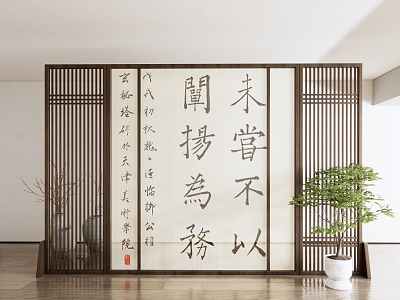 未嘗不以
闡揚為務
戊戌初秋臨柳公權
玄秘塔碑於天津美術學院